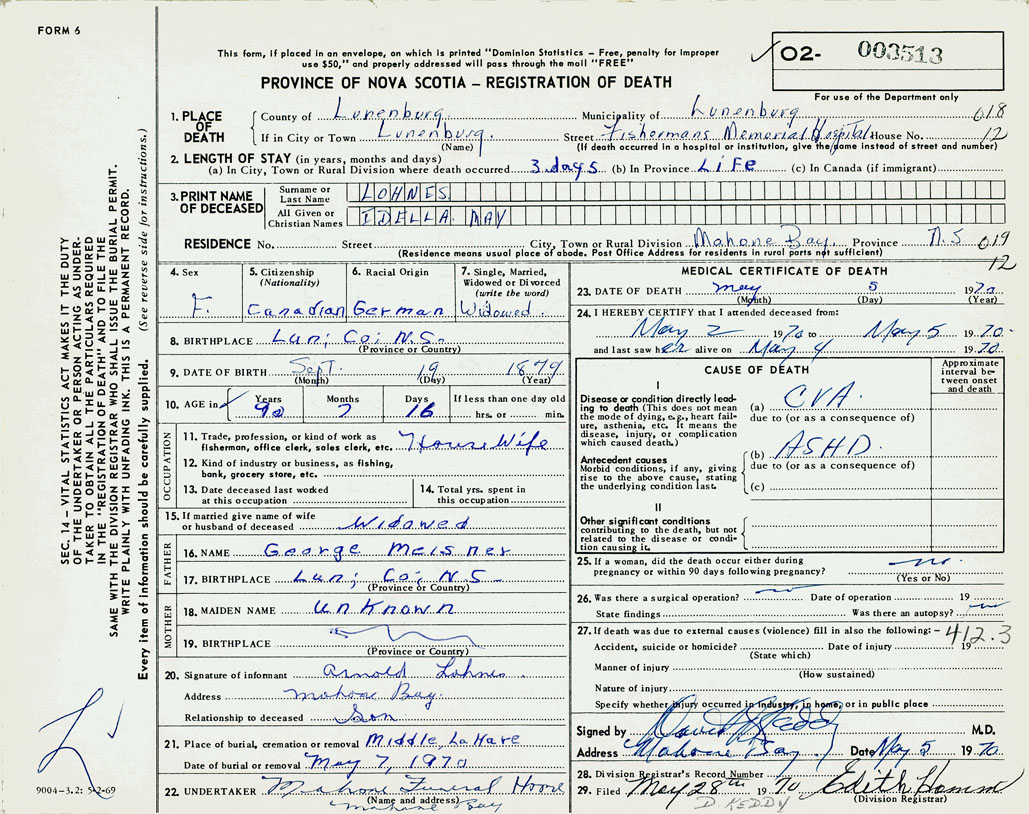 FORM 6
This form, if placed in an envelope, on which is printed "Dominion Statistics – Free, penalty for improper
use $50," and properly addressed will pass through the mail "FREE"
PROVINCE OF NOVA SCOTIA – REGISTRATION OF DEATH
02- 003513
For use of the Department only
1. PLACE OF DEATH
County of Lunenburg Municipality of Lunenburg 018
If in City or Town Lunenburg. Street Fishermans Memorial Hospital House No. 12
(Name) (If death occurred in a hospital or institution, give the name instead of street and number)
2. LENGTH OF STAY (in years, months and days)
(a) In City, Town or Rural Division where death occurred 3 days (b) In Province LIFE (c) In Canada (if immigrant)
3. PRINT NAME OF DECEASED
Surname or Last Name LOHNES
All Given or Christian Names IDELLA MAY
RESIDENCE No. Street City, Town or Rural Division Mahone Bay. Province N.S 019
(Residence means usual place of abode. Post Office Address for residents in rural parts not sufficient)
12
4. Sex F.
5. Citizenship (Nationality) Canadian
6. Racial Origin German
7. Single, Married, Widowed or Divorced (write the word) Widowed
8. BIRTHPLACE Lun; Co; N.S.
(Province or Country)
9. DATE OF BIRTH Sept. 19 1879
(Month) (Day) (Year)
10. AGE in Years 90 Months 7 Days 16 If less than one day old hrs. or min.
OCCUPATION
11. Trade, profession, or kind of work as
fisherman, office clerk, sales clerk, etc. HouseWife
12. Kind of industry or business, as fishing,
bank, grocery store, etc.
13. Date deceased last worked
at this occupation
14. Total yrs. spent in
this occupation
15. If married give name of wife
or husband of deceased Widowed
FATHER
16. NAME George Meisner
17. BIRTHPLACE Lun; Co; N.S
(Province or Country)
MOTHER
18. MAIDEN NAME unknown
19. BIRTHPLACE
(Province or Country)
20. Signature of informant Arnold Lohnes
Address Mahone Bay.
Relationship to deceased Son
21. Place of burial, cremation or removal Middle, LaHave
Date of burial or removal May 7, 1970
22. UNDERTAKER Mahone Funeral Home
(Name and address)
Mahone Bay
MEDICAL CERTIFICATE OF DEATH
23. DATE OF DEATH May 5 1970
(Month) (Day) (Year)
24. I HEREBY CERTIFY that I attended deceased from:
May 2 1970 to May 5 1970
and last saw her alive on May 4 1970
CAUSE OF DEATH
Approximate interval between onset and death
I
Disease or condition directly leading to death (This does not
mean the mode of dying, e.g., heart failure, asthenia, etc. It means the
disease, injury, or complication
which caused death.)
(a) CVA.
due to (or as a consequence of)
Antecedent causes
Morbid conditions, if any, giving
rise to the above cause, stating
the underlying condition last.
(b) ASHD.
due to (or as a consequence of)
(c)
II
Other significant conditions
contributing to the death, but not
related to the disease or condition
causing it.
25. If a woman, did the death occur either during
pregnancy or within 90 days following pregnancy? no.
(Yes or No)
26. Was there a surgical operation? no Date of operation 19
State findings Was there an autopsy? no
27. If death was due to external causes (violence) fill in also the following:– 412.3
Accident, suicide or homicide? Date of injury 19
(State which)
Manner of injury
(How sustained)
Nature of injury
Specify whether injury occurred in industry, in home, or in public place
Signed by David Keddy M.D.
Address Mahone Bay Date May 5 1970
28. Division Registrar's Record Number
29. Filed May 28th 1970
D KEDDY
(Division Registrar)
SEC. 14 – VITAL STATISTICS ACT MAKES IT THE DUTY
OF THE UNDERTAKER OR PERSON ACTING AS UNDERTAKER
TO OBTAIN ALL THE PARTICULARS REQUIRED
IN THE "REGISTRATION OF DEATH" AND TO FILE THE
SAME WITH THE DIVISION REGISTRAR WHO SHALL ISSUE THE BURIAL PERMIT.
WRITE PLAINLY WITH UNFADING INK. THIS IS A PERMANENT RECORD.
Every item of information should be carefully supplied. (See reverse side for instructions.)
9004-3.2: 5-2-69